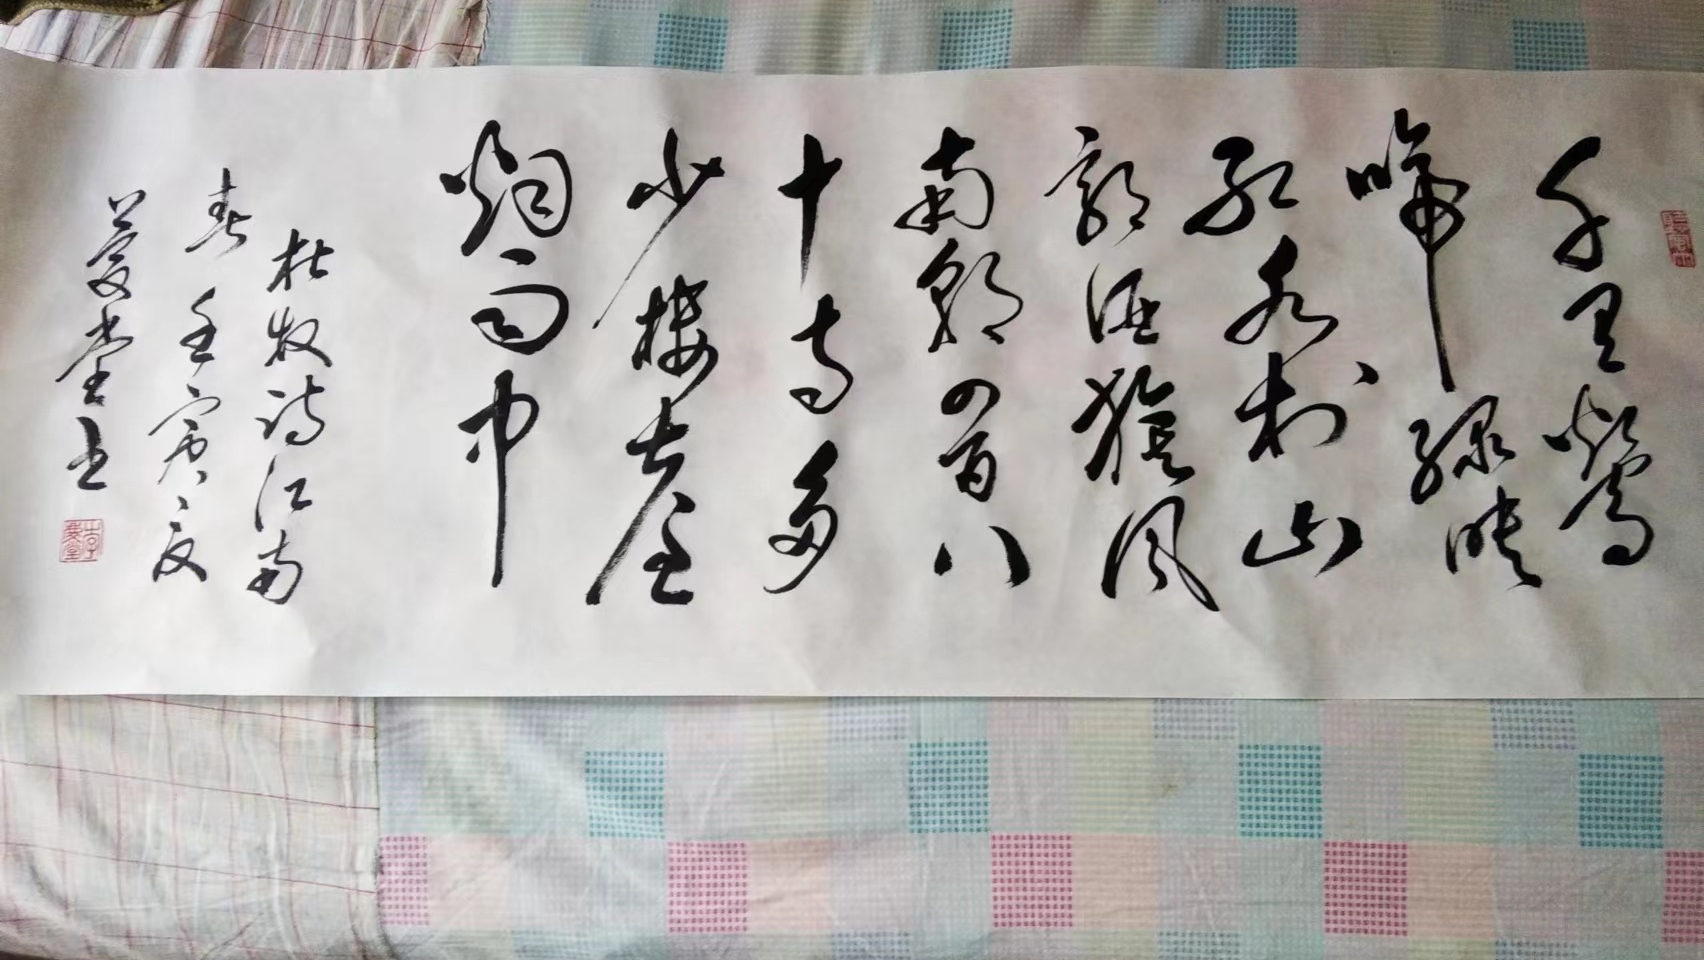 千里莺
啼绿映
红水村山
郭酒旗风
南朝四百八
十寺多
少楼台
烟雨中
杜牧诗江南
春 壬寅夏
爱堂书